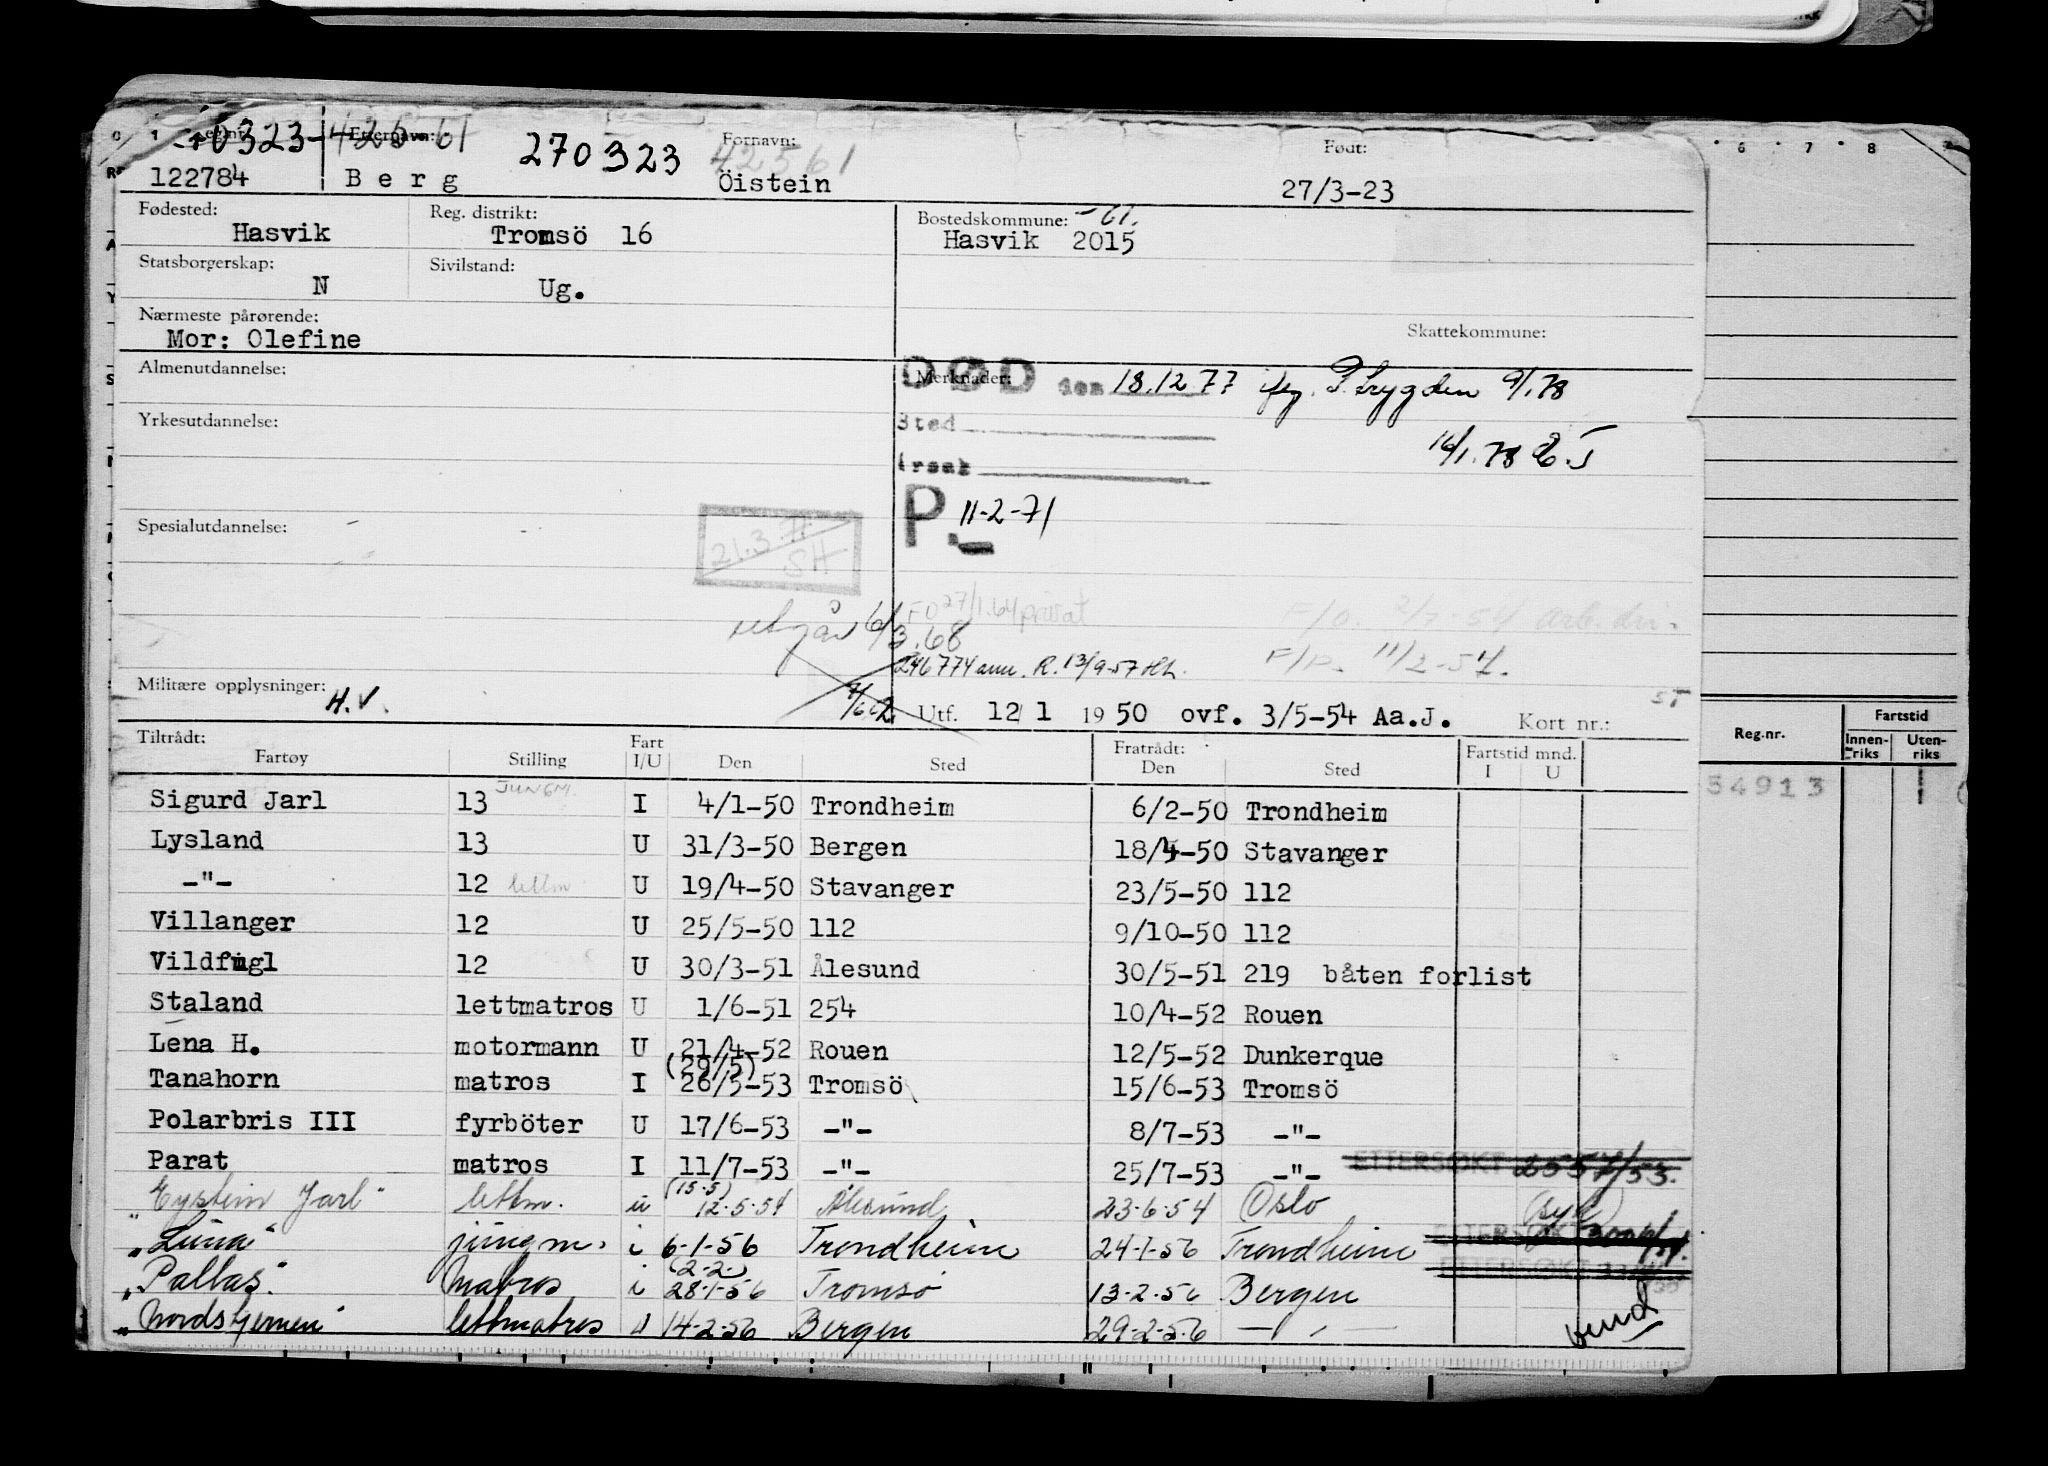 Reg.nr. Etternavn: Fornavn: Født:
122784 Berg 270323 42561 Öistein 27/3-23
Fødested: Reg. distrikt: Bostedskommune: -61.
Hasvik Tromsö 16 Hasvik 2015
Statsborgerskap: Sivilstand:
N Ug.
Nærmeste pårørende: Skattekommune:
Mor: Olefine
Almenutdannelse: Merknader: DØD den 18.12.77 9/1.78
Yrkesutdannelse: Sted
16/1.78
Årsak
P. 11-2-71
Spesialutdannelse: 21.3
SH
FO 27/1.64 privat F/O. 2/7-54
utgår 6/3.68
246774 ann. R. 13/9-57 F/P. 11/2-57.
Militære opplysninger: H.V. Utf. 12/1 1950 ovf. 3/5-54 Aa.J. Kort nr.: ST
Tiltrådt: Fratrådt: Fartstid mnd.
Fartøy Stilling Fart I/U Den Sted Den Sted I U
Sigurd Jarl 13 JUNGM. I 4/1-50 Trondheim 6/2-50 Trondheim
Lysland 13 U 31/3-50 Bergen 18/4-50 Stavanger
-"- 12 lettm U 19/4-50 Stavanger 23/5-50 112
Villanger 12 U 25/5-50 112 9/10-50 112
Vildfugl 12 U 30/3-51 Ålesund 30/5-51 219 båten forlist
Staland lettmatros U 1/6-51 254 10/4-52 Rouen
Lena H. motormann U 21/4-52 Rouen 12/5-52 Dunkerque
(29/5)
Tanahorn matros I 26/5-53 Tromsö 15/6-53 Tromsö
Polarbris III fyrböter U 17/6-53 -"- 8/7-53 -"-
Parat matros I 11/7-53 -"- 25/7-53 -"- ETTERSØKT 2557/53.
(15.5)
Eystein Jarl" lettm. u 12.5.54 Ålesund 23.6.54 Oslo (syk)
"Luna" jungm. i 6-1-56 Trondheim 24-1-56 Trondheim ETTERSØKT
(2-2-)
"Pallas". Matros i 28-1-56 Tromsø 13-2-56 Bergen ETTERSØKT
"Nordstjernen" lettmatros U 14-2-56 Bergen 29-2-56 — " — vend
6 7 8
Reg.nr. Fartstid
Innen-riks Uten-riks
54913